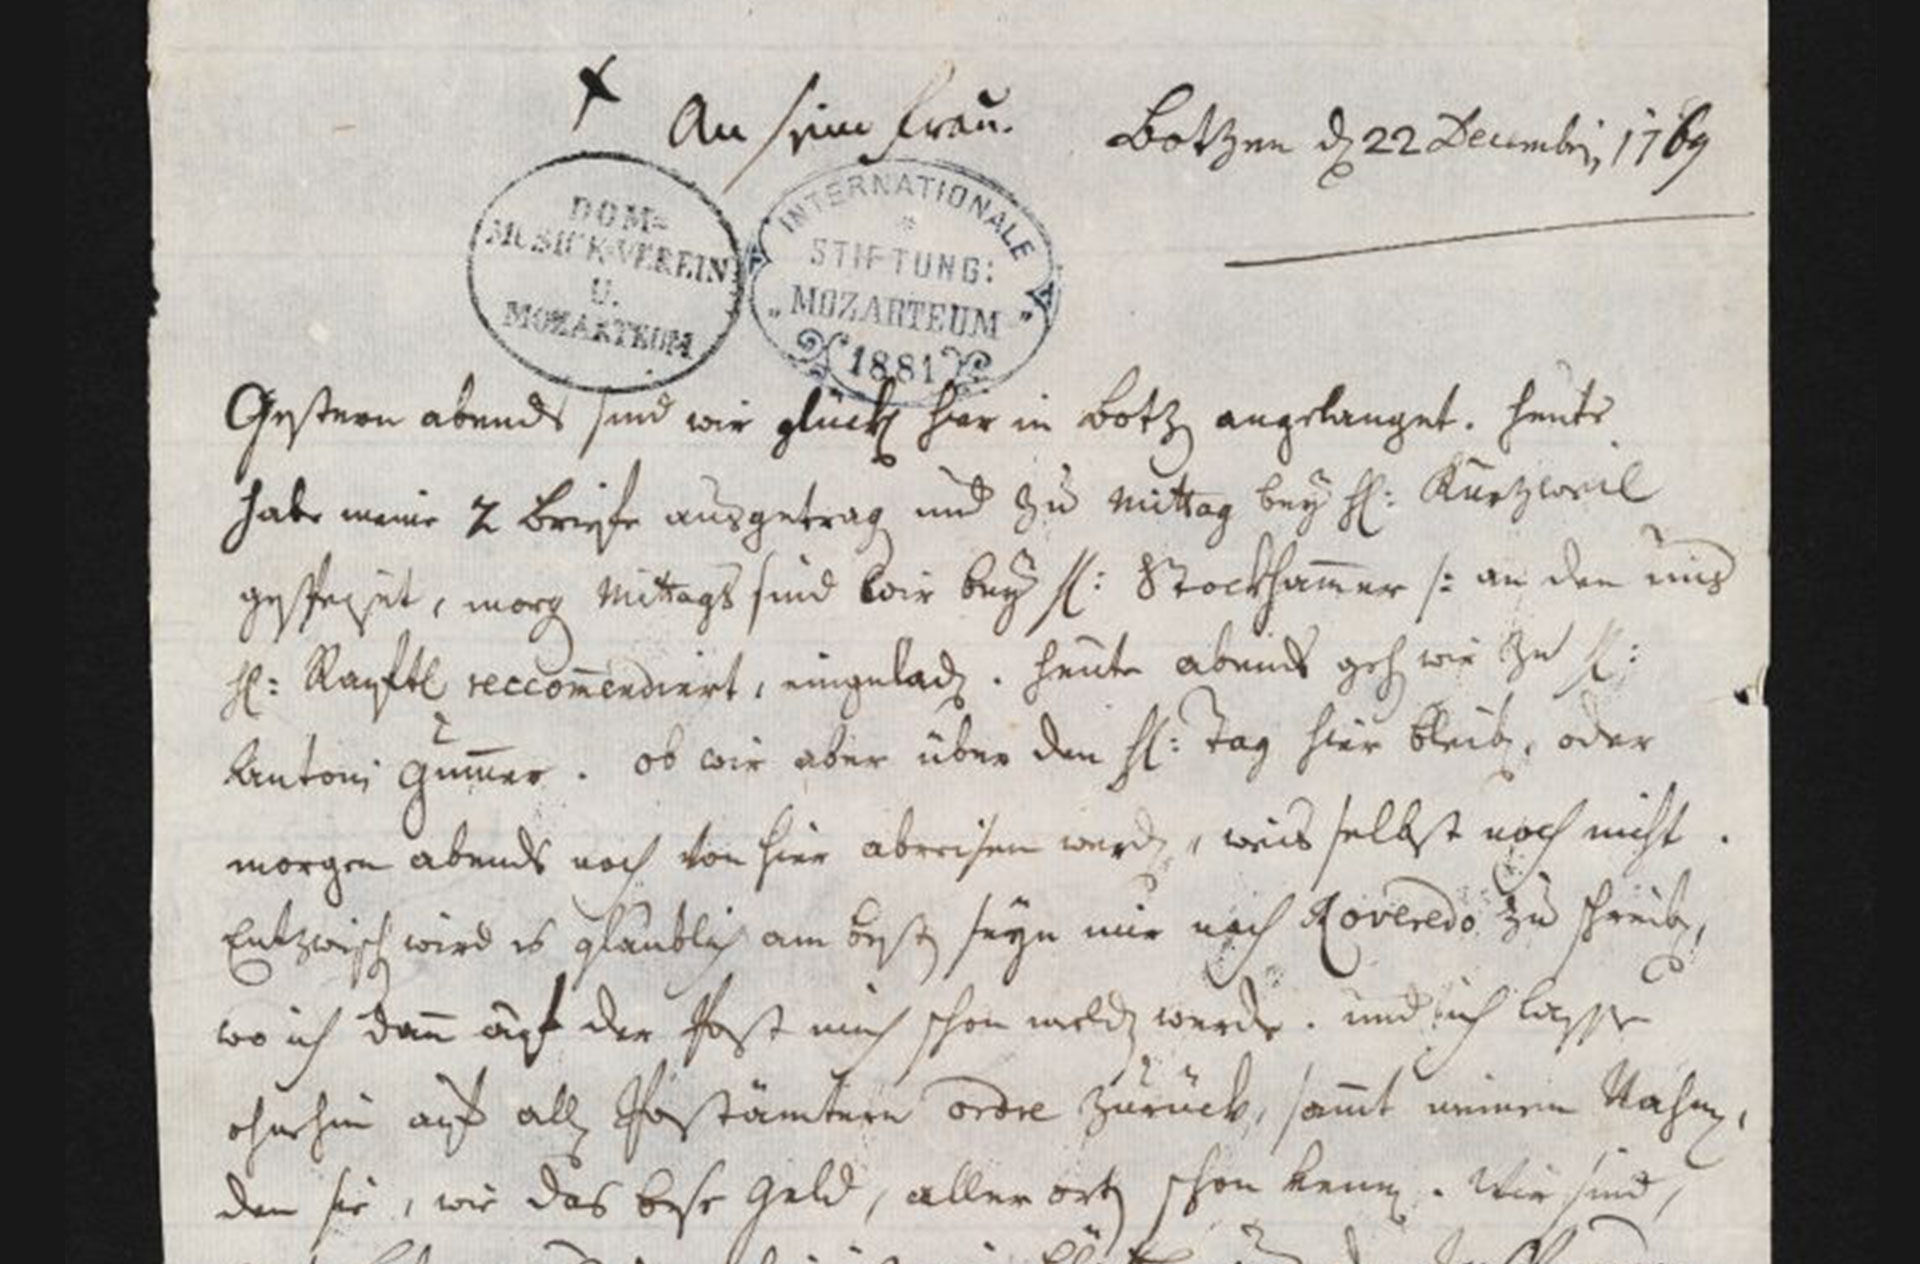 An seine Frau. Botzen dn 22 Decembri, 1769
DOM=
MUSICK-VEREIN
U.
MOZARTEUM
INTERNATIONALE
STIFTUNG:
„MOZARTEUM”
1881
Gestern abends sind wir glückl hier in Botzn angelanget. heute
habe meine 2 Briefe ausgetragn und zu Mittag bey H: Kurtzweil
gespeiset, morgn Mittags sind wir bey H: Stockham̄er /: an den uns
H: Ranftl reccom̄endiert, eingeladn. heute abends gehn wir zu H:
Antoni Gum̄er. ob wir aber über den Hl: Tag hier bleibn, oder
morgen abends noch von hier abreisen werdn, weis selbst noch nicht.
Entzwischn wird es glaublich am bestn seyn mir nach Roveredo zu schreibn,
wo ich dan̄ auf der Post mich schon meldn werde. und ich lasse
ohnehin auf alln Postämtern ordre zurück, sam̄t meinem Nahmn,
den sie, wie das bese Geld, aller ortn schon kennn. Wir sind,